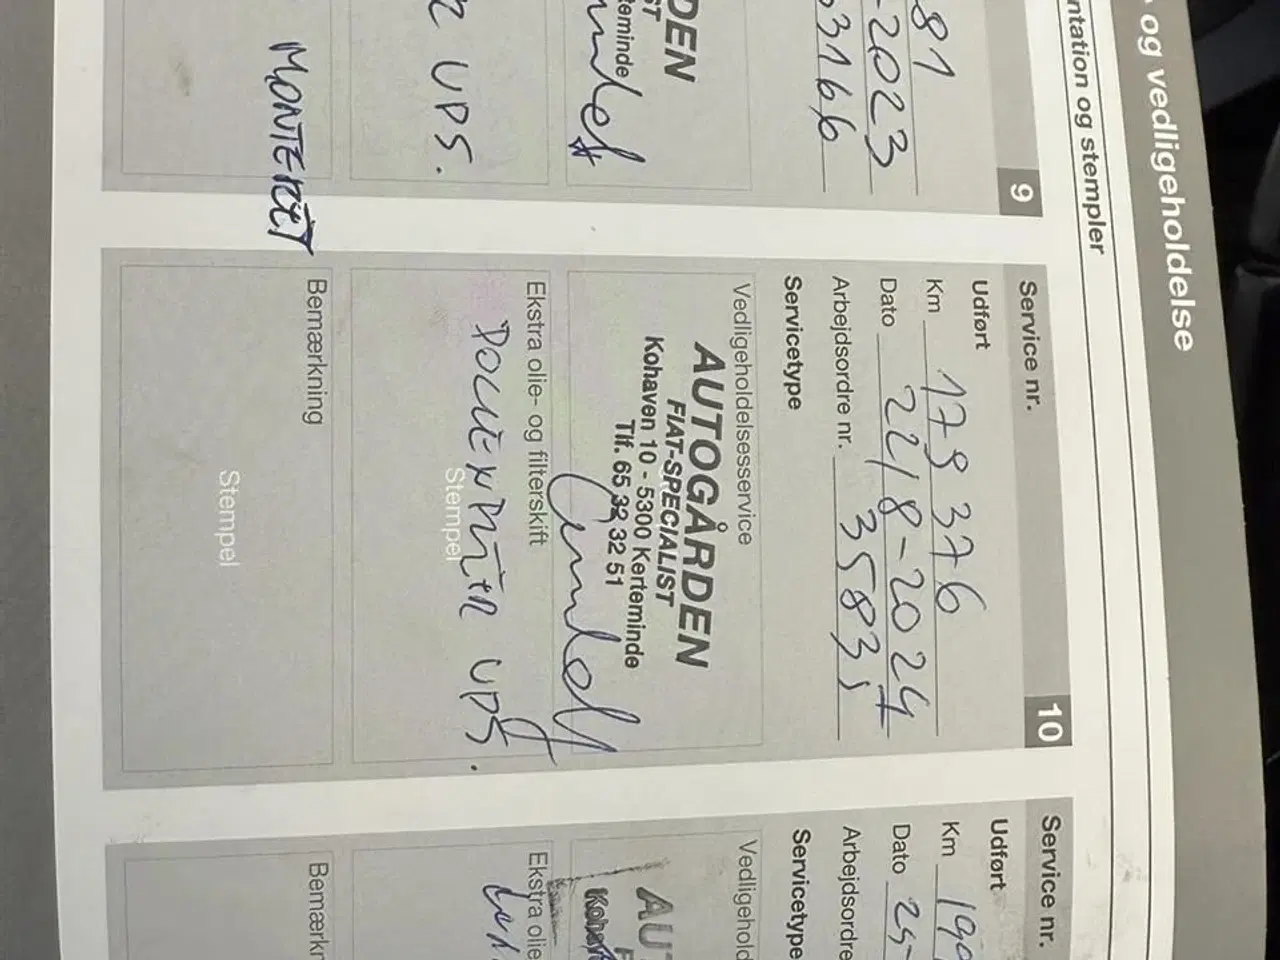 og vedligeholdelse
ntation og stempler
9
81
-2023
33166
DEN
ST
teminde
UDS.
MONTERET
Service nr. 10
Udført
Km 179 376
Dato 22/8-2024
Arbejdsordre nr. 35835
Servicetype
Vedligeholdelsesservice
AUTOGÅRDEN
FIAT-SPECIALIST
Kohaven 10 - 5300 Kerteminde
Tlf. 65 32 32 51
Ekstra olie- og filterskift
POLLENFILTER UDS.
Stempel
Bemærkning
Stempel
Service nr.
Udført
Km 190
Dato 25-
Arbejdsordre
Servicetype
Vedligehold
AU
F
Koha
Ekstra olie
Bemærkn